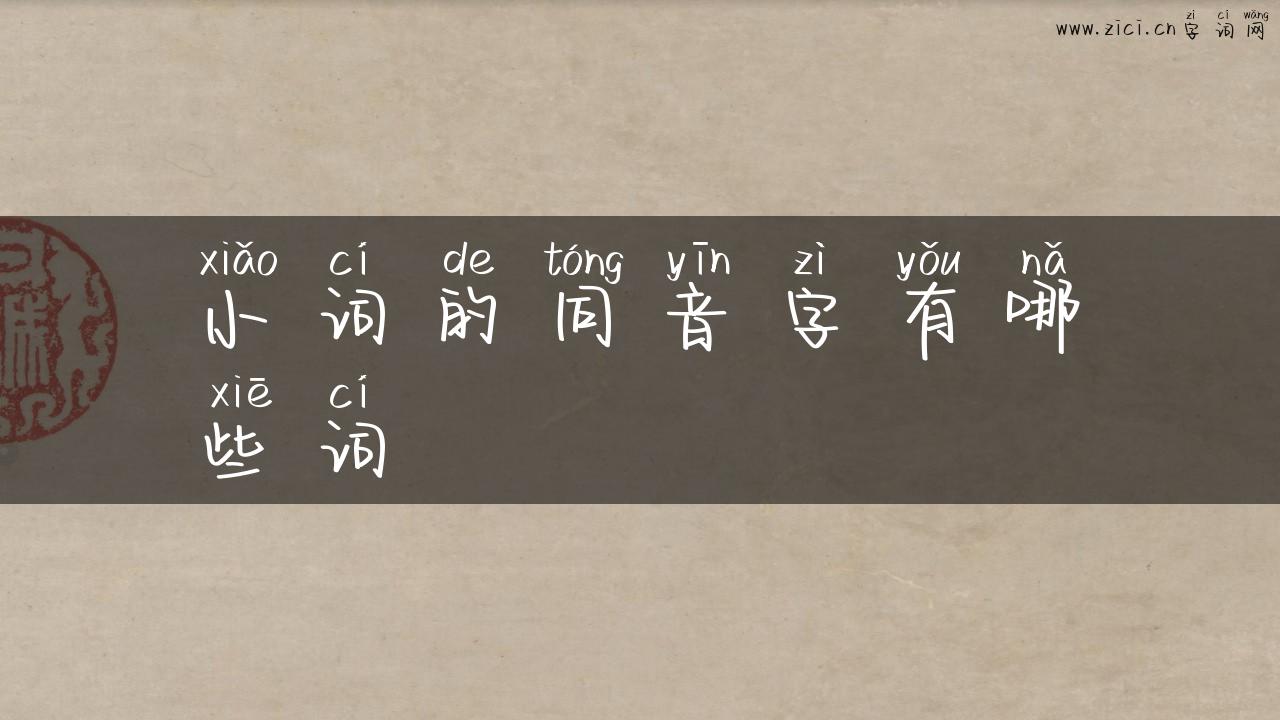 zì cí wǎng
www.zici.cn 字词网
xiǎo cí de tóng yīn zì yǒu nǎ
小词的同音字有哪
xiē cí
些词